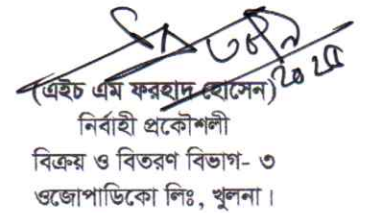 (এইচ এম ফরহাদ হোসেন)
নির্বাহী প্রকৌশলী
বিক্রয় ও বিতরণ বিভাগ- ৩
ওজোপাডিকো লিঃ, খুলনা।